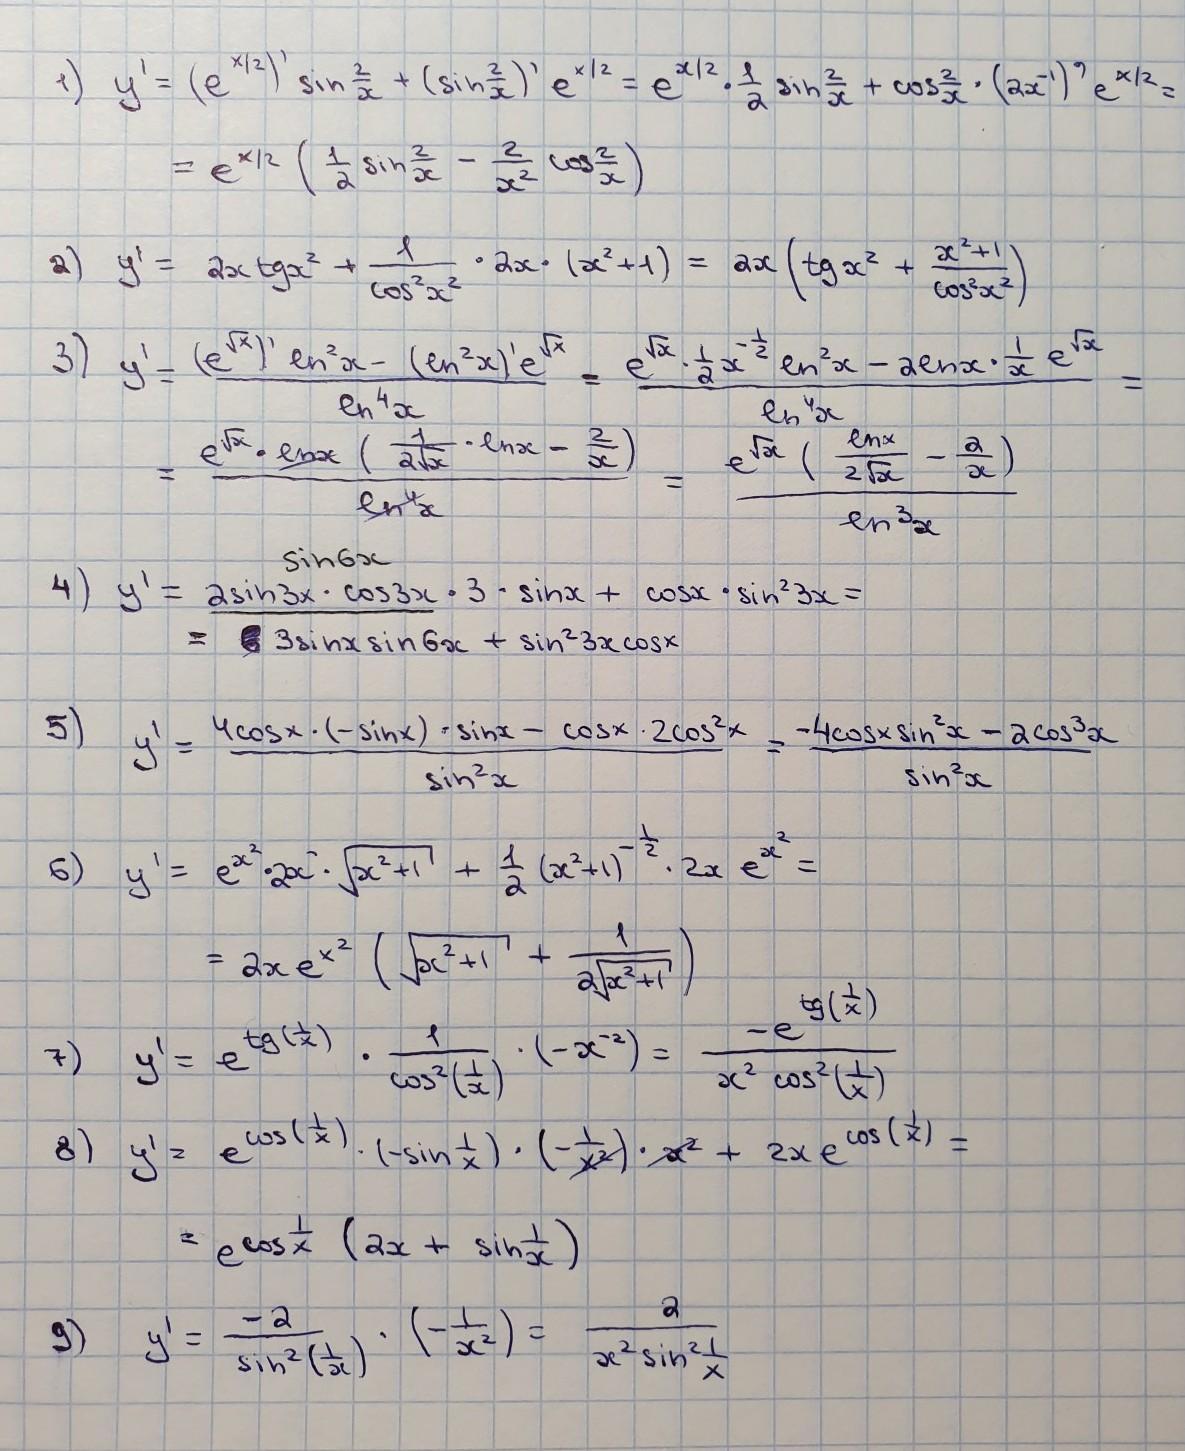 1) y' = (e^{x/2})' sin 2/x + (sin 2/x)' e^{x/2} = e^{x/2} · 1/2 sin 2/x + cos 2/x · (2x^{-1})' e^{x/2} =
= e^{x/2} (1/2 sin 2/x - 2/x² cos 2/x)
2) y' = 2x tg x² + 1/cos²x² · 2x · (x²+1) = 2x (tg x² + (x²+1)/cos²x²)
3) y' = ((e^{√x})' ln²x - (ln²x)' e^{√x})/ln⁴x = (e^{√x} · 1/2 x^{-1/2} ln²x - 2lnx · 1/x e^{√x})/ln⁴x =
= (e^{√x} · lnx (1/(2√x) · lnx - 2/x))/ln⁴x = (e^{√x} (lnx/(2√x) - 2/x))/ln³x
sin6x
4) y' = 2sin3x · cos3x · 3 · sinx + cosx · sin²3x =
= 3sinx sin6x + sin²3x cosx
5) y' = (4cosx · (-sinx) · sinx - cosx · 2cos²x)/sin²x = (-4cosx sin²x - 2cos³x)/sin²x
6) y' = e^{x²} · 2x · √(x²+1) + 1/2 (x²+1)^{-1/2} · 2x e^{x²} =
= 2x e^{x²} (√(x²+1) + 1/(2√(x²+1)))
7) y' = e^{tg(1/x)} · 1/cos²(1/x) · (-x^{-2}) = -e^{tg(1/x)}/(x² cos²(1/x))
8) y' = e^{cos(1/x)} · (-sin 1/x) · (-1/x²) · x² + 2x e^{cos(1/x)} =
= e^{cos 1/x} (2x + sin 1/x)
9) y' = -2/sin²(1/x) · (-1/x²) = 2/(x² sin² 1/x)